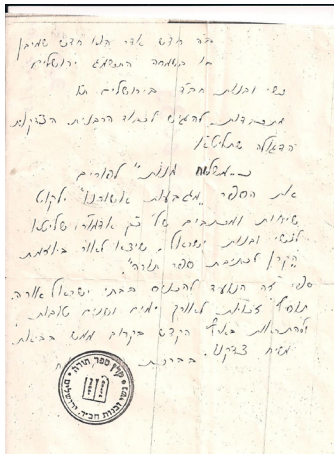 ב"ה חדש אדר הנו חדש שמזלן
בו בשמחה התשמ"ג ירושלים
נשי ובנות חב"ד בירושלים ת"ו
מתכבדות להגיש לכבוד הרבנית הצדקנית
הדגולה שתליט"א
כ"משלוח מנות" לפורים
את הספר "מגבעות אשורנו" ילקוט
שיחות ומכתבים של כ"ק אדמו"ר שליט"א
לנשי ובנות ישראל. שיצא לאור ביוזמת
"הקרן לכתיבת ספר תורה".
ספר זה הנועד להכניס בבתי ישראל אורה.
תוסיף זכות לאורך ימים ושנים טובות
ולהתראות בארץ הקדש בקרוב ממש בביאת
משיח צדקנו.
בברכה
קרן ספר תורה
נשי ובנות חב"ד, ירושלים